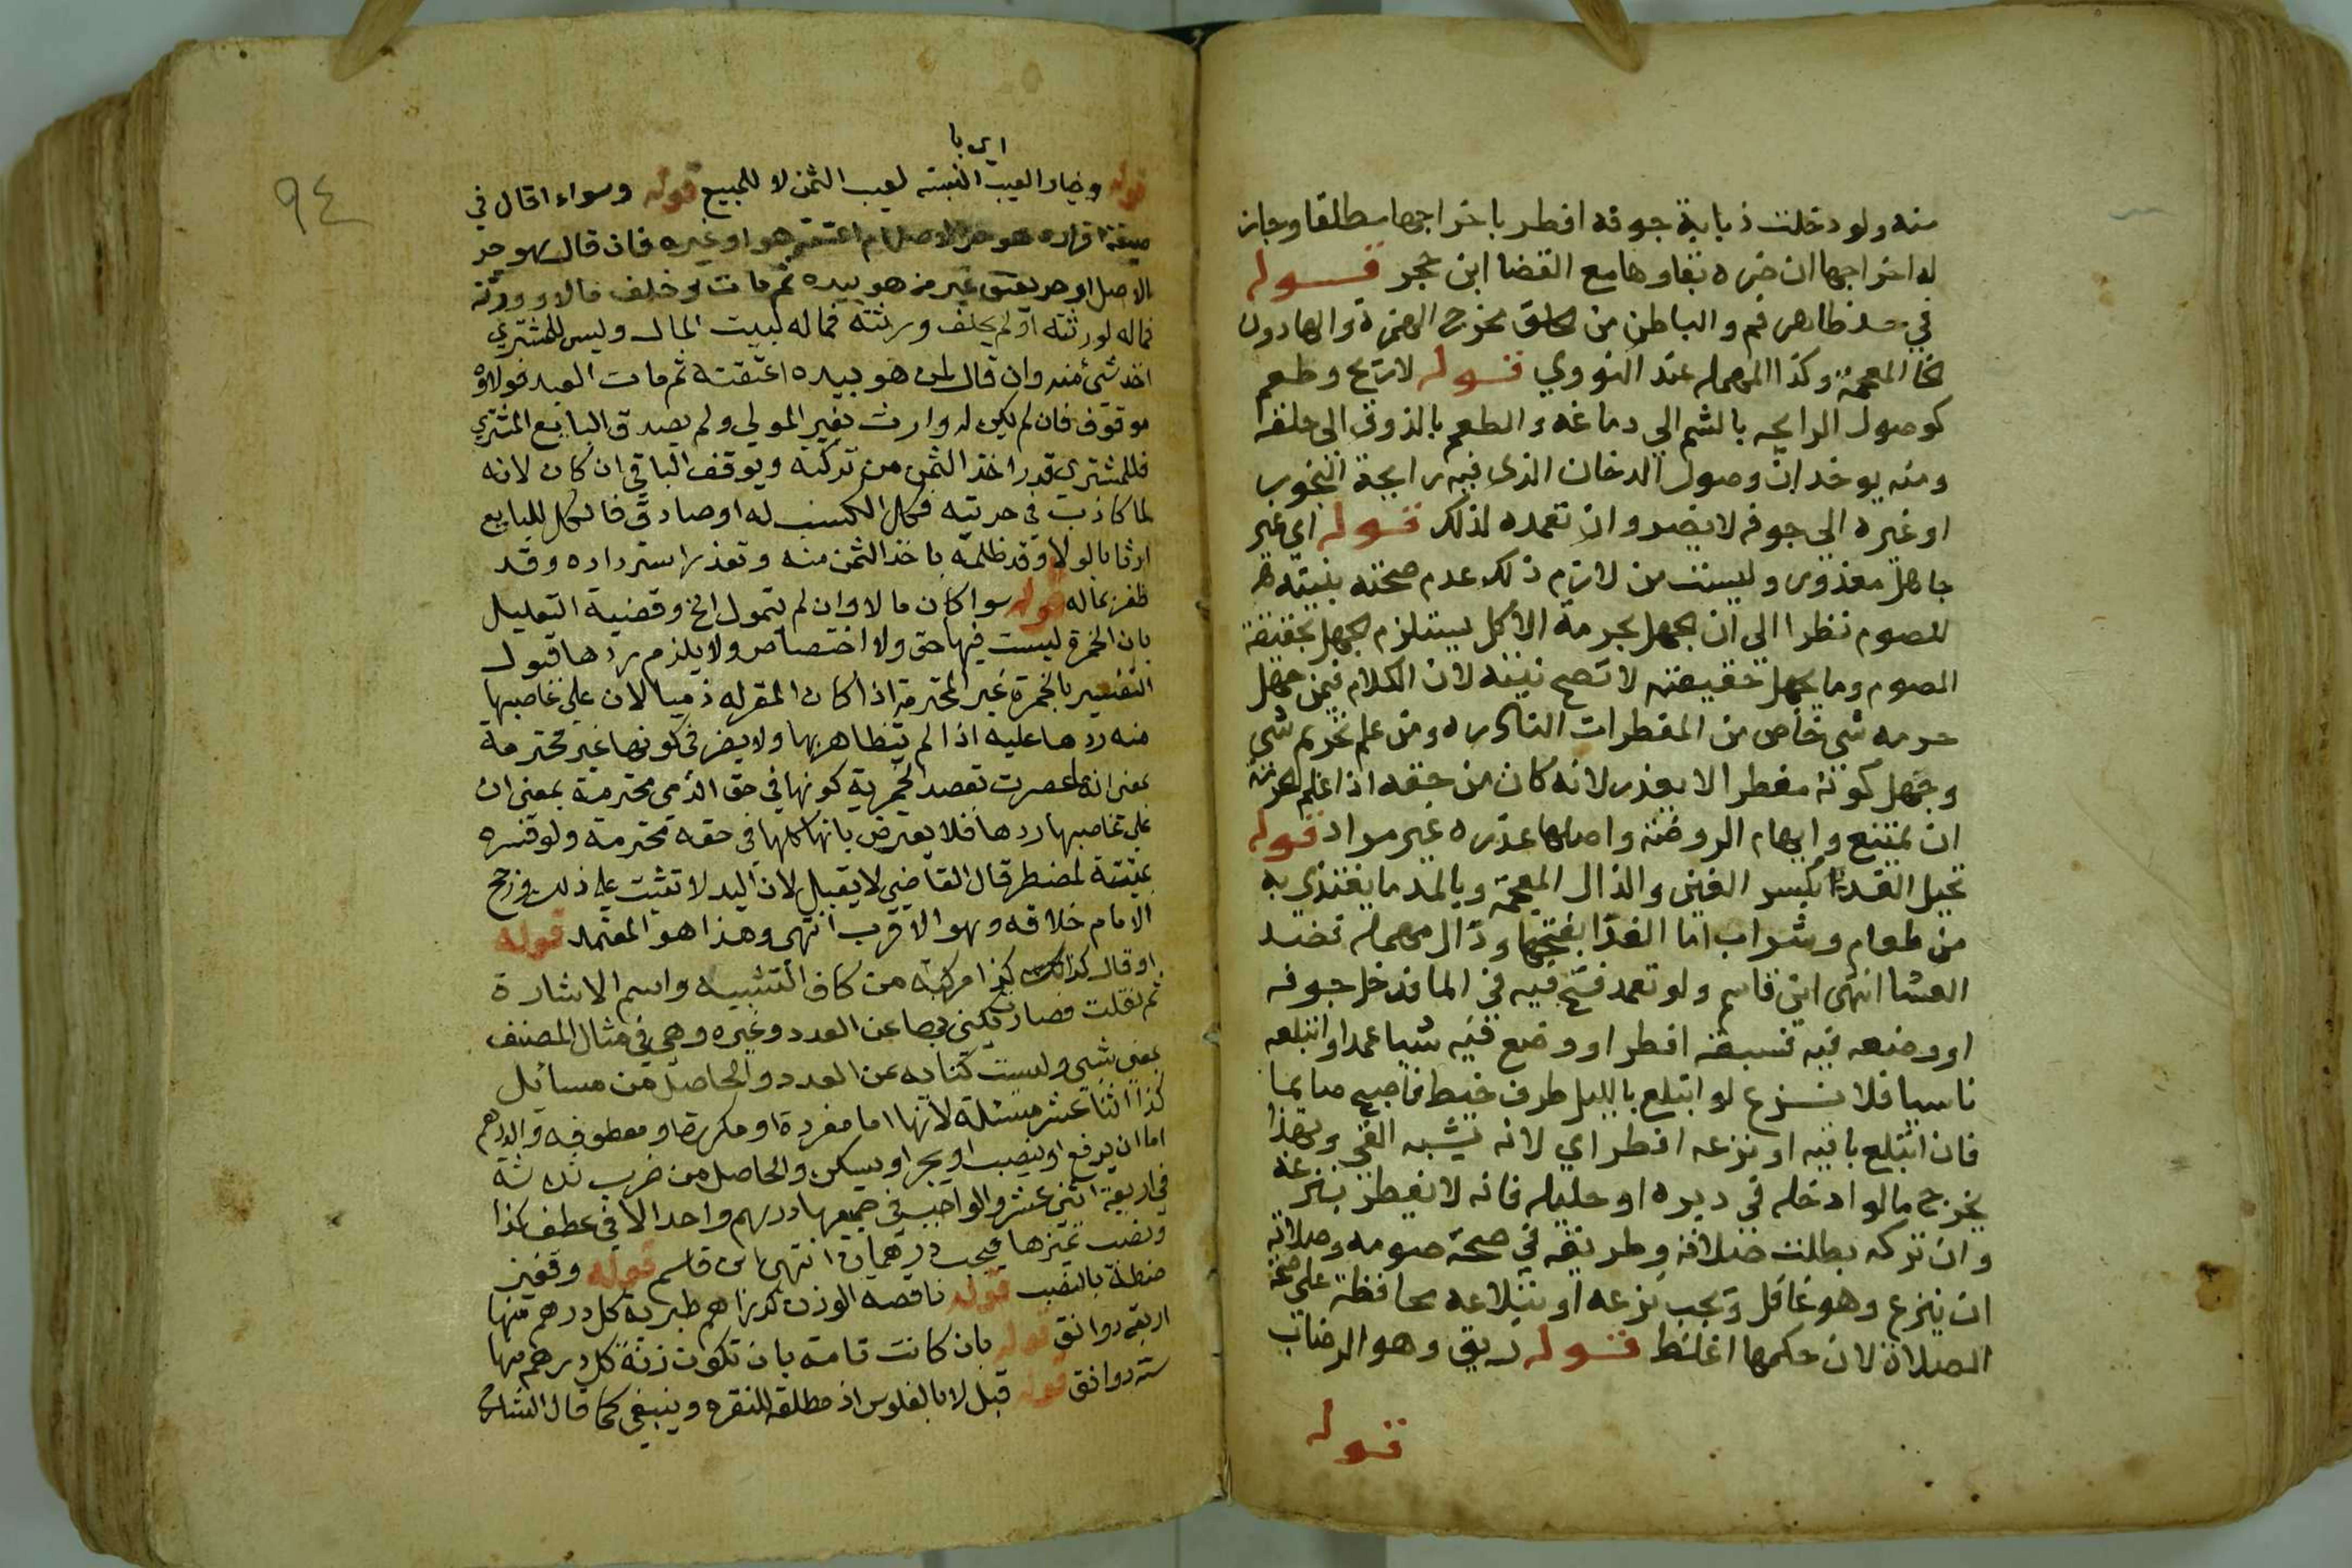 منه ولو دخلت ذبابة جوفه افطر باخراجها مطلقا وجاز
له اخراجها ان ضره بقاوها مع القضا ابن حجر قوله
في حد ظاهر فم والباطن من الحلق مخرج الهمزة والها دون
الخا المعجمة وكذا المهمله عند النووي قوله لا ريح وطعم
كوصول الرايحه بالشم الي دماغه والطعم بالذوق الى حلقه
ومنه يوخذ ان وصول الدخان الذي فيه رايحة البخور
او غيره الي جوفه لا يضر وان تعمده لذلك قوله اي غير
جاهل معذور وليست من لازم ذلك عدم صحته بنيته
للصوم نظرا الي ان الجهل بحرمة الاكل يستلزم الجهل بحقيقة
الصوم وما يجهل حقيقته لا تصح نيته لان الكلام فيمن جهل
حرمه شي خاص من المفطرات النادره ومن علم تحريم شي
وجهل كونه مفطرا لا يعذر لانه كان من حقه اذا علم الحرمة
ان يمتنع وايهام الروضة واصلها عذره غير مراد قوله
تحيل الغذا بكسر الغين والذال المعجمة وبالمد ما يغتذي به
من طعام وشراب اما الغدا بفتحها ودال مهمله فضد
العشا انتهى ابن قاسم ولو تعمد فتح فيه في الما فدخل جوفه
او وضعه فيه فسبقه افطر او وضع فيه شيا عمدا وابتلعه
ناسيا فلا فرع لو ابتلع بالليل طرف خيط فاصبح صايما
فان ابتلع باقيه او نزعه افطر اي لانه يشبه القي وبهذا
يخرج مالو ادخله في دبره او حليله فانه لا يفطر بنزعه
وان تركه بطلت صلاته وطريقه في صحة صومه وصلاته
ان ينزع وهو غافل ويجب نزعه او ابتلاعه محافظة على صحة
الصلاة لان حكمها اغلظ قوله ريق وهو الرضاب
قوله
٩٤
اي با
قوله وخيار العيب البتة لعيب الثمن لا للمبيع قوله وسواء اقال في
صيغة اقراره هو حر الاصل ام اعتقه هو او غيره فان قال هو حر
الاصل او حر بعتق غير من هو بيده ثم مات وخلف مالا وورثة
فماله لورثته او لم يخلف ورثته فماله لبيت المال وليس للمشتري
اخذ شئ منه وان قال لمن هو بيده اعتقته ثم مات العبد فولاؤه
موقوف فان لم يكن له وارث بغير المولي ولم يصدق البايع المشتري
فللمشتري قدر اخذ الثمن من تركته ويوقف الباقي ان كان لانه
اما كاذب في حريته فكل الكسب له او صادق فالكل للبايع
ارثا بالولا وقد ظلمه باخذ الثمن منه وتعذر استرداده وقد
ظفر بماله قوله سوا كان مالا وان لم يتمول الخ وقضية التعليل
بان الخمرة ليست فيها حق ولا اختصاص ولا يلزم ردها قبول
التفسير بالخمرة غير المحترمة اذا كان المقر له ذميا لان علي غاصبها
منه ردها عليه اذا لم يتظاهر بها ولا يضر في كونها غير محترمة
بمعنى انها عصرت بقصد الخمرية كونها في حق الذمي محترمة بمعنى ان
علي غاصبها ردها فلا يعترض بانها كلها في حقه محترمة ولو فسره
بميتة لمضطر قال القاضي لا يقبل لان اليد لا تثبت علي ذلك ورجح
الامام خلافه وهو الاقرب انتهى وهذا هو المعتمد قوله
او قال كذا كذا مركبه من كاف التشبيه واسم الاشارة
ثم نقلت فصار يكنى بها عن العدد وغيره وهي في مثال المصنف
بمعنى شيي وليست كناية عن العدد والحاصل من مسائل
كذا اثنا عشر مسئلة لانها اما مفردة او مكررة او معطوفه والدرهم
اما ان يرفع او ينصب او يجر او يسكن والحاصل من ضرب ثلاثة
في اربعة اثني عشر والواجب في جميعها درهم واحد الا في عطف كذا
ونصب تمييزها فيجب درهمان انتهى ابن قاسم قوله وقفيز
حنطة بالنصب قوله ناقصه الوزن كدراهم طبرية كل درهم منها
اربعة دوانق قوله بان كانت تامة بان تكون زنة كل درهم منها
سته دوانق قوله قبل لا بالفلوس اذ مطلقه للنقره وينبغي كما قال الشارح